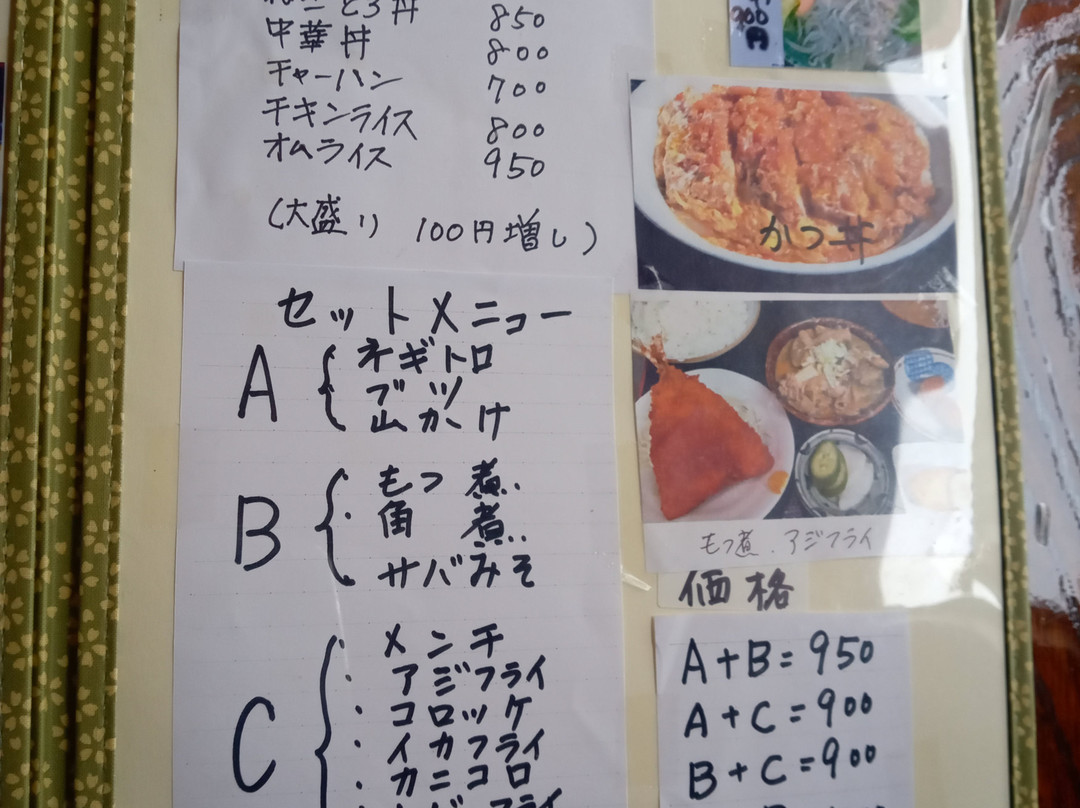 850
中華丼 800
チャーハン 700
チキンライス 800
オムライス 950
(大盛り 100円増し)
セットメニュー
A
ネギトロ
ブツ
山かけ
B
もつ煮
角煮
サバみそ
C
メンチ
アジフライ
コロッケ
イカフライ
カニコロ
900円
かつ丼
もつ煮.アジフライ
価格
A+B=950
A+C=900
B+C=900